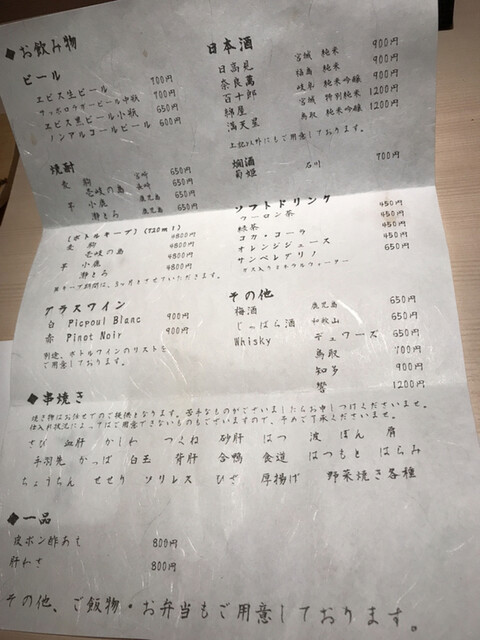 ◆お飲み物
ビール
ヱビス生ビール 700円
サッポロラガービール中瓶 700円
ヱビス黒ビール小瓶 650円
ノンアルコールビール 600円
焼酎
麦 駒 宮崎 650円
壱岐の島 長崎 650円
芋 小鹿 鹿児島 650円
灘とら 鹿児島 650円
(ボトルキープ) (720ml)
麦 駒 4800円
壱岐の島 4800円
芋 小鹿 4800円
灘とら 4800円
※キープ期間は、3ヶ月とさせていただきます。
グラスワイン
白 Picpoul Blanc 900円
赤 Pinot Noir 900円
別途、ボトルワインのリストをご用意しております。
日本酒
日高見 宮城 純米 900円
奈良萬 福島 純米 900円
百十郎 岐阜 純米吟醸 900円
綿屋 宮城 特別純米 1200円
満天星 鳥取 純米吟醸 1200円
上記以外にもご用意しております。
燗酒
菊姫 石川 700円
ソフトドリンク
ウーロン茶 450円
緑茶 450円
コカ・コーラ 450円
オレンジジュース 450円
サンペレグリノ 650円
ガス入りミネラルウォーター
その他
梅酒 鹿児島 650円
じゃばら酒 和歌山 650円
Whisky デュワーズ 650円
鳥取 700円
知多 900円
響 1200円
◆串焼き
焼き物はお任せでのご提供となります。苦手なものがございましたらお申しつけくださいませ。
仕入れ状況によってはご用意できないものもございますので、予めご了承くださいませ。
さび 血肝 かしわ つくね 砂肝 はつ 波 ぼん 肩
手羽先 かっぱ 白玉 背肝 合鴨 食道 はつもと はらみ
ちょうちん せせり ソリレス ひざ 厚揚げ 野菜焼き各種
◆一品
皮ポン酢あえ 800円
肝わさ 800円
その他、ご飯物・お弁当もご用意しております。